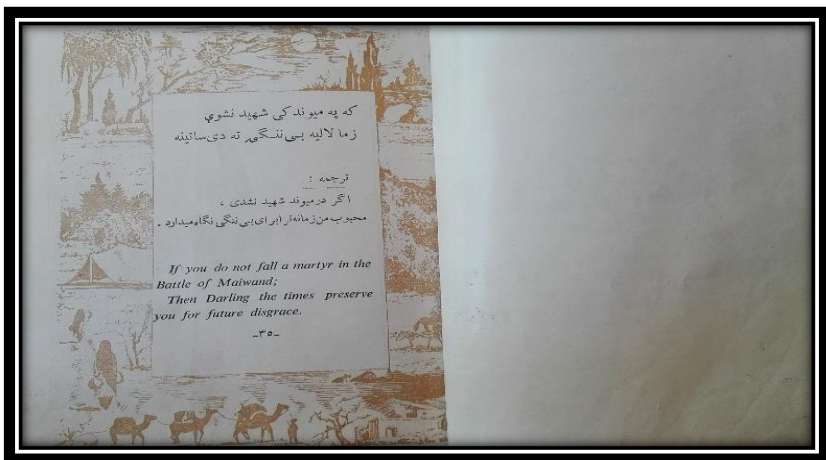 که په میوند کی شهید نشوې
زما لالیه بسی ننگی ته دی ساتینه
ترجمه :
اگر در میوند شهید نشدی ،
محبوب من زمانه ترا برای بی ننگی نگاه میدارد .
If you do not fall a martyr in the
Battle of Maiwand;
Then Darling the times preserve
you for future disgrace.
-۳۵-